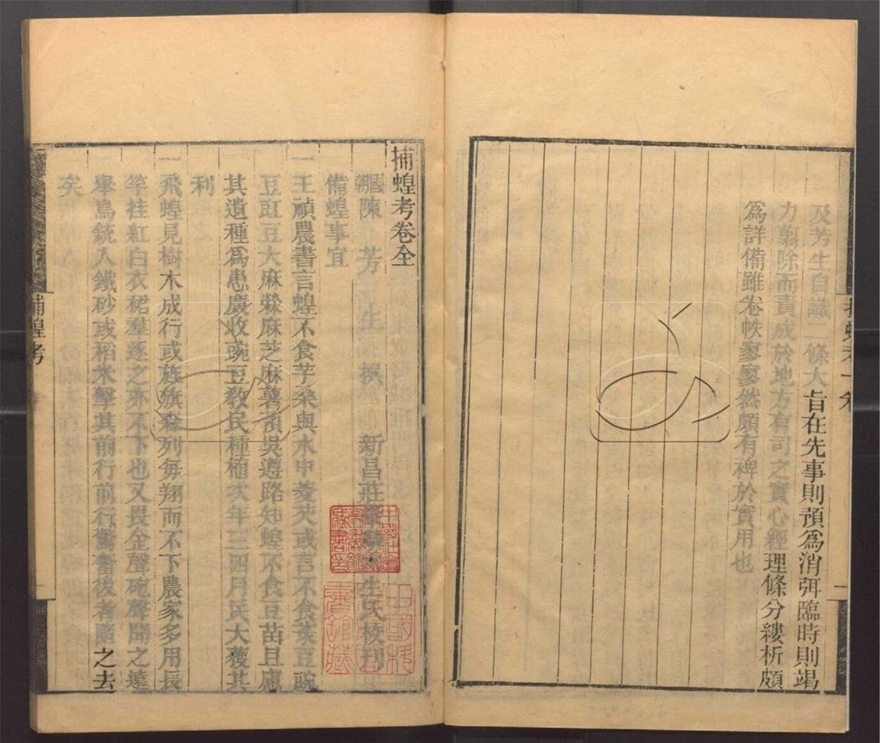 及芳生自識一條大旨在先事則預為消弭臨時則竭
力剪除而責成於地方有司之實心經理條分縷析頗
為詳備雖卷帙寥寥然頗有裨於實用也
捕蝗考卷全
陳 芳 生 撰
新昌莊 生氏校刊
備蝗事宜
一王禎農書言蝗不食芋桑與水中菱芡或言不食菉豆豌
豆豇豆大麻䔛麻芝麻薯蕷吳遵路知蝗不食豆苗且慮
其遺種為患廣收豌豆敎民種植次年三四月民大獲其
利
一飛蝗見樹木成行或旌旗森列每翔而不下農家多用長
竿挂紅白衣裙羣逐之亦不下也又畏金聲砲聲聞之遠
舉鳥銃入鐵砂或稻米擊其前行前行驚奮後者隨之去
矣
捕蝗考